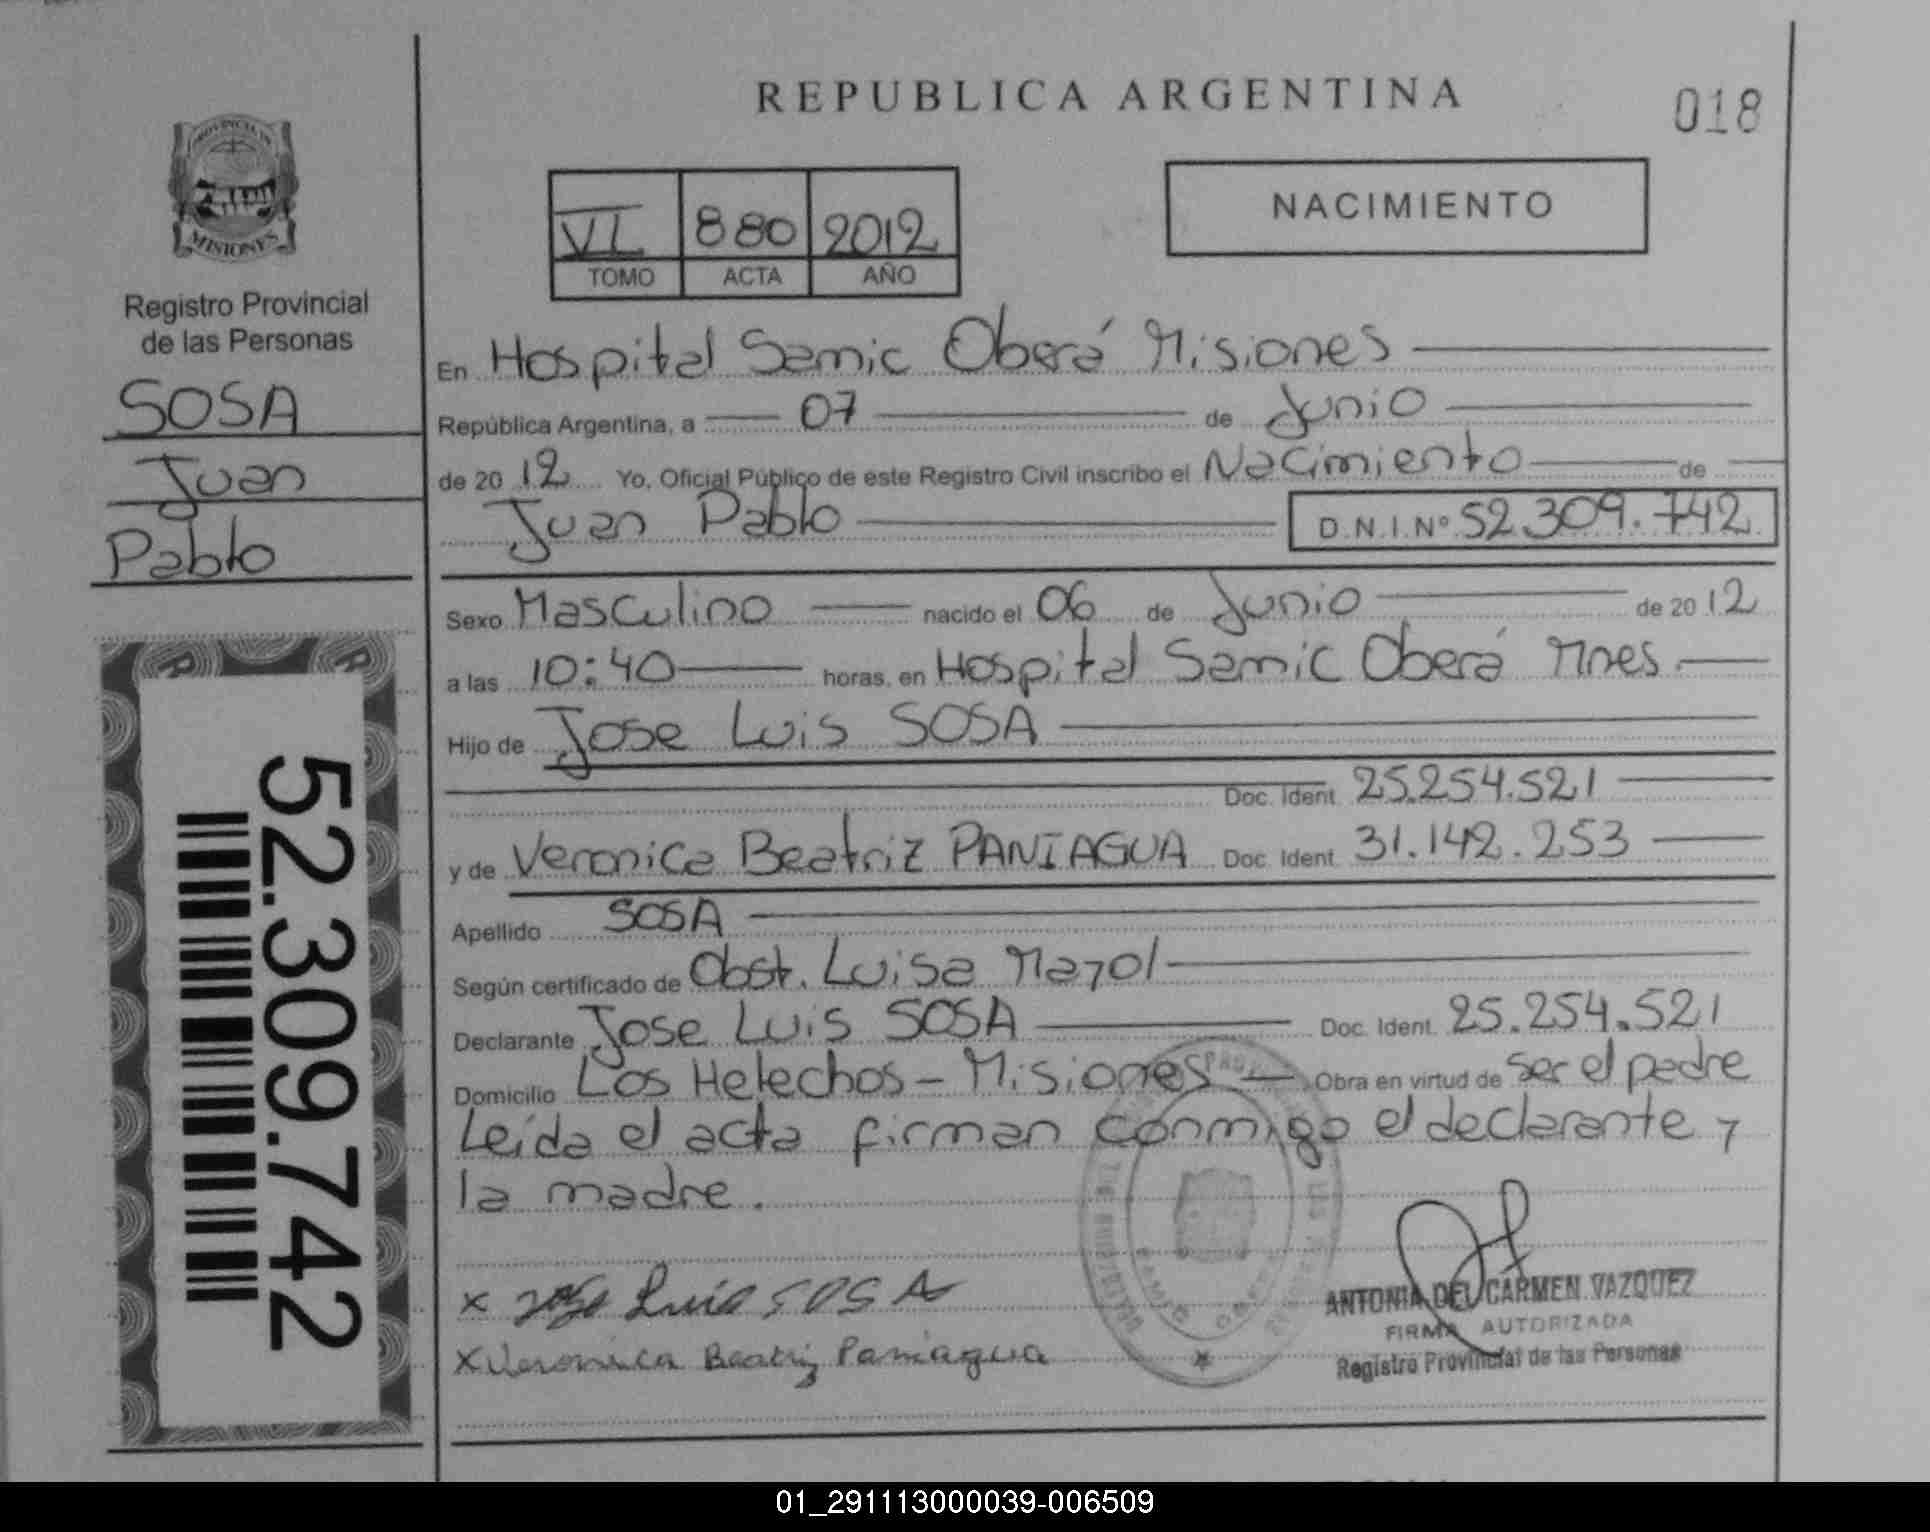 REPUBLICA ARGENTINA
018
PROVINCIA DE
MISIONES
Registro Provincial
de las Personas
SOSA
Juan
Pablo
52.309.742
VI 880 2012
TOMO ACTA AÑO
NACIMIENTO
En Hospital Samic Oberá Misiones
República Argentina, a 07 de Junio
de 2012 Yo, Oficial Público de este Registro Civil inscribo el Nacimiento de
Juan Pablo D.N.I.Nº 52.309.742
Sexo Masculino nacido el 06 de Junio de 2012
a las 10:40 horas, en Hospital Samic Oberá Mnes.
Hijo de Jose Luis SOSA
Doc. Ident. 25.254.521
y de Veronica Beatriz PANIAGUA Doc. Ident. 31.142.253
Apellido SOSA
Según certificado de Obst. Luisa Mayol
Declarante Jose Luis SOSA Doc. Ident. 25.254.521
Domicilio Los Helechos - Misiones Obra en virtud de ser el padre
Leída el acta firman conmigo el declarante y
la madre.
x Jose Luis SOSA
x Veronica Beatriz Paniagua
ANTONIA DEL CARMEN VAZQUEZ
FIRMA AUTORIZADA
Registro Provincial de las Personas
01_291113000039-006509